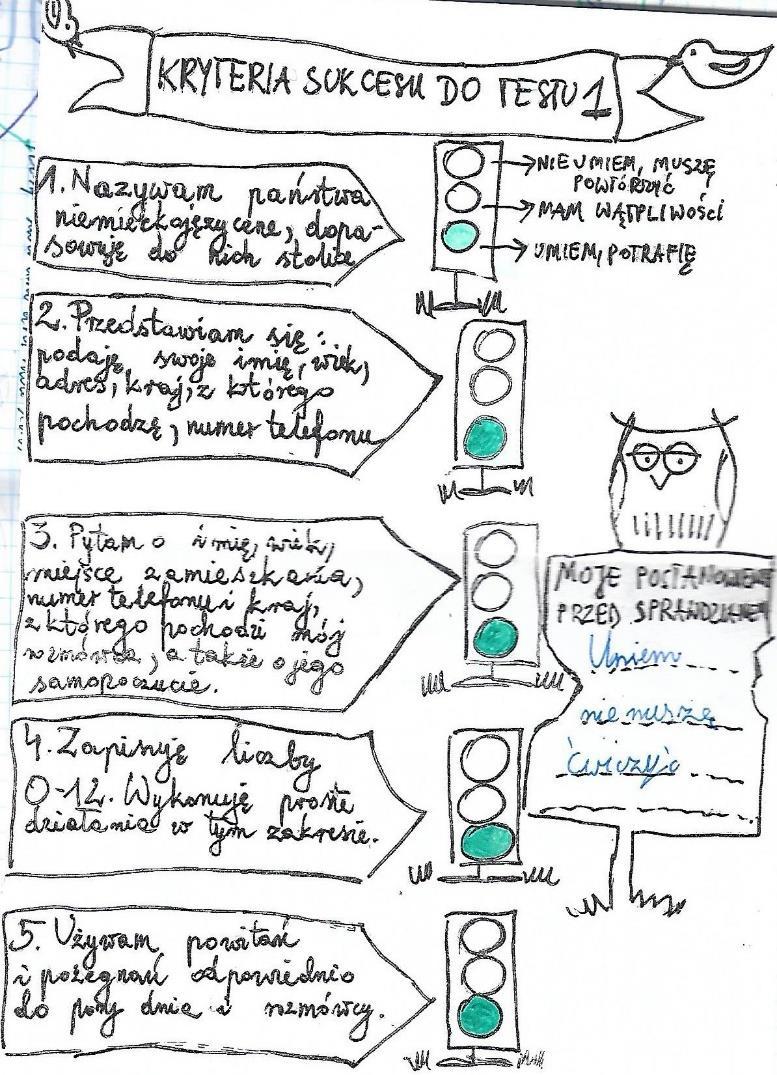 KRYTERIA SUKCESU DO TESTU 1
1. Nazywam państwa
niemieckojęzyczne, dopa-
sowuję do nich stolice
NIE UMIEM, MUSZĘ
POWTÓRZYĆ
MAM WĄTPLIWOŚCI
UMIEM, POTRAFIĘ
2. Przedstawiam się:
podaję swoje imię, wiek,
adres, kraj, z którego
pochodzę, numer telefonu
3. Pytam o imię, wiek,
miejsce zamieszkania,
numer telefonu i kraj,
z którego pochodzi mój
rozmówca, a także o jego
samopoczucie.
MOJE POSTANOWIENIE
PRZED SPRAWDZIANEM
Umiem
nie muszę
ćwiczyć
4. Zapisuję liczby
0-12. Wykonuję proste
działania w tym zakresie.
5. Używam powitań
i pożegnań odpowiednio
do pory dnia i rozmówcy.